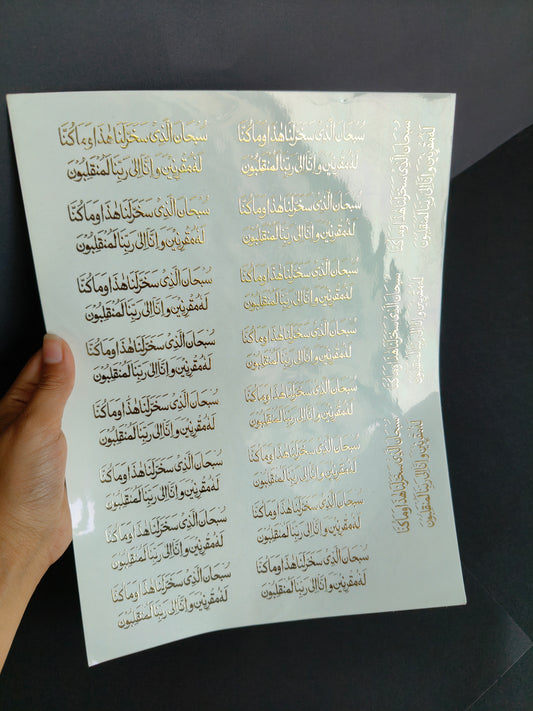 سُبحَانَ الَّذِی سَخَّرَلَنَا هٰذَا وَمَا كُنَّا
لَهٗ مُقْرِنِیْنَ وَ اِنَّا اِلٰی رَبِّنَا لَمُنْقَلِبُوْنَ
سُبحَانَ الَّذِی سَخَّرَلَنَا هٰذَا وَمَا كُنَّا
لَهٗ مُقْرِنِیْنَ وَ اِنَّا اِلٰی رَبِّنَا لَمُنْقَلِبُوْنَ
سُبحَانَ الَّذِی سَخَّرَلَنَا هٰذَا وَمَا كُنَّا
لَهٗ مُقْرِنِیْنَ وَ اِنَّا اِلٰی رَبِّنَا لَمُنْقَلِبُوْنَ
سُبحَانَ الَّذِی سَخَّرَلَنَا هٰذَا وَمَا كُنَّا
لَهٗ مُقْرِنِیْنَ وَ اِنَّا اِلٰی رَبِّنَا لَمُنْقَلِبُوْنَ
سُبحَانَ الَّذِی سَخَّرَلَنَا هٰذَا وَمَا كُنَّا
لَهٗ مُقْرِنِیْنَ وَ اِنَّا اِلٰی رَبِّنَا لَمُنْقَلِبُوْنَ
سُبحَانَ الَّذِی سَخَّرَلَنَا هٰذَا وَمَا كُنَّا
لَهٗ مُقْرِنِیْنَ وَ اِنَّا اِلٰی رَبِّنَا لَمُنْقَلِبُوْنَ
سُبحَانَ الَّذِی سَخَّرَلَنَا هٰذَا وَمَا كُنَّا
لَهٗ مُقْرِنِیْنَ وَ اِنَّا اِلٰی رَبِّنَا لَمُنْقَلِبُوْنَ
سُبحَانَ الَّذِی سَخَّرَلَنَا هٰذَا وَمَا كُنَّا
لَهٗ مُقْرِنِیْنَ وَ اِنَّا اِلٰی رَبِّنَا لَمُنْقَلِبُوْنَ
سُبحَانَ الَّذِی سَخَّرَلَنَا هٰذَا وَمَا كُنَّا
لَهٗ مُقْرِنِیْنَ وَ اِنَّا اِلٰی رَبِّنَا لَمُنْقَلِبُوْنَ
سُبحَانَ الَّذِی سَخَّرَلَنَا هٰذَا وَمَا كُنَّا
لَهٗ مُقْرِنِیْنَ وَ اِنَّا اِلٰی رَبِّنَا لَمُنْقَلِبُوْنَ
سُبحَانَ الَّذِی سَخَّرَلَنَا هٰذَا وَمَا كُنَّا
لَهٗ مُقْرِنِیْنَ وَ اِنَّا اِلٰی رَبِّنَا لَمُنْقَلِبُوْنَ
سُبحَانَ الَّذِی سَخَّرَلَنَا هٰذَا وَمَا كُنَّا
لَهٗ مُقْرِنِیْنَ وَ اِنَّا اِلٰی رَبِّنَا لَمُنْقَلِبُوْنَ
سُبحَانَ الَّذِی سَخَّرَلَنَا هٰذَا وَمَا كُنَّا
لَهٗ مُقْرِنِیْنَ وَ اِنَّا اِلٰی رَبِّنَا لَمُنْقَلِبُوْنَ
سُبحَانَ الَّذِی سَخَّرَلَنَا هٰذَا وَمَا كُنَّا
لَهٗ مُقْرِنِیْنَ وَ اِنَّا اِلٰی رَبِّنَا لَمُنْقَلِبُوْنَ
سُبحَانَ الَّذِی سَخَّرَلَنَا هٰذَا وَمَا كُنَّا
لَهٗ مُقْرِنِیْنَ وَ اِنَّا اِلٰی رَبِّنَا لَمُنْقَلِبُوْنَ
سُبحَانَ الَّذِی سَخَّرَلَنَا هٰذَا وَمَا كُنَّا
لَهٗ مُقْرِنِیْنَ وَ اِنَّا اِلٰی رَبِّنَا لَمُنْقَلِبُوْنَ
سُبحَانَ الَّذِی سَخَّرَلَنَا هٰذَا وَمَا كُنَّا
لَهٗ مُقْرِنِیْنَ وَ اِنَّا اِلٰی رَبِّنَا لَمُنْقَلِبُوْنَ
سُبحَانَ الَّذِی سَخَّرَلَنَا هٰذَا وَمَا كُنَّا
لَهٗ مُقْرِنِیْنَ وَ اِنَّا اِلٰی رَبِّنَا لَمُنْقَلِبُوْنَ
سُبحَانَ الَّذِی سَخَّرَلَنَا هٰذَا وَمَا كُنَّا
لَهٗ مُقْرِنِیْنَ وَ اِنَّا اِلٰی رَبِّنَا لَمُنْقَلِبُوْنَ